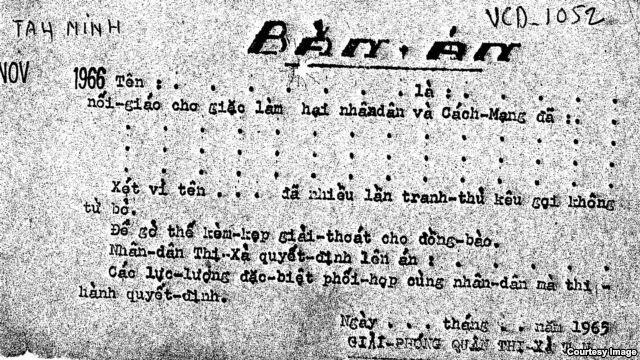 TAY NINH
VCD_1052
BẢN ÁN
NOV 1966 Tên : . . . . . . . . . . là : . . . . . .
nối-giáo cho giặc làm hại nhândân và Cách-Mạng đã :. .
. . . . . . . . . . . . . . .
. . . . . . . . . . . . . . .
. . . . . . . . . . . . . . .
Xét vì tên . . . đã nhiều lần tranh-thủ kêu gọi không
từ bỏ.
Để gở thế kèm-kẹp giải-thoát cho đồng-bào.
Nhân-dân Thị-Xả quyết-định lên án : . . . . . .
Các lực-lượng đặc-biệt phối-hợp cùng nhân-dân mà thi -
hành quyết-định.
Ngày . . . tháng . . năm 1965
GIẢI-PHÓNG QUÂN THỊ-XẢ
Courtesy Image